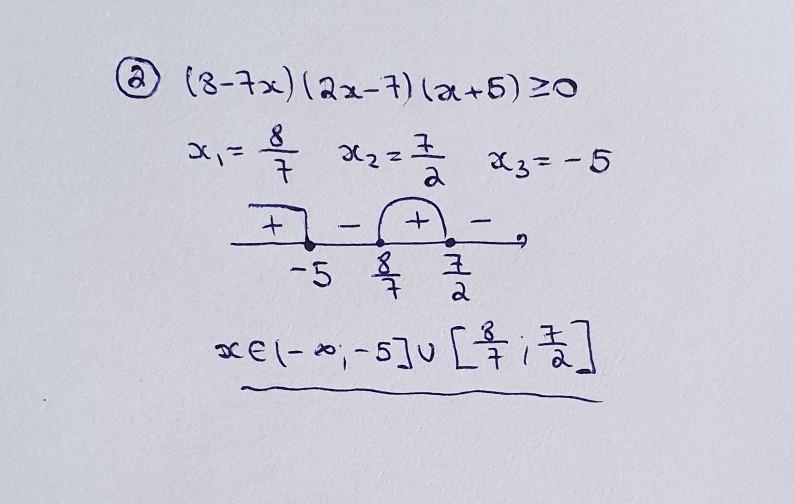 ② (8-7x)(2x-7)(x+5)≥0
x₁=8/7 x₂=7/2 x₃=-5
+ - + -
-5 8/7 7/2
x∈(-∞;-5]∪[8/7;7/2]